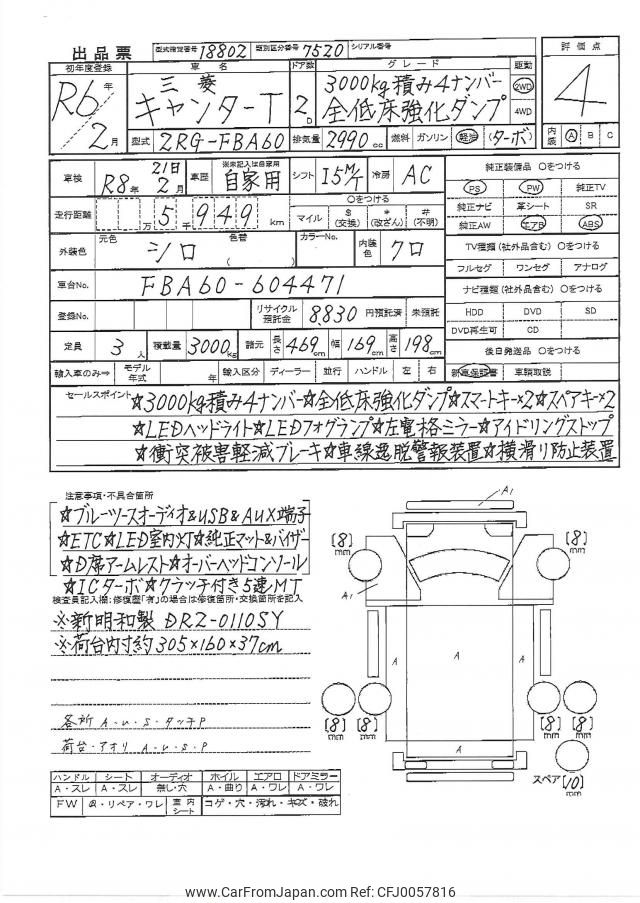 出品票
型式指定番号 18802 類別区分番号 7520 シリアル番号
初年度登録 車名 ドア数 グレード 駆動 評価点
R6年 2月
三菱
キャンターT
2D
3000kg積み4ナンバー
全低床強化ダンプ
2WD
4WD
4
型式 2RG-FBA60 排気量 2990cc 燃料 ガソリン 軽油 (ターボ)
内装 A B C
車検 R8年 21日 2月 車歴 ※未記入は自家用 自家用 シフト I5M/T 冷房 AC
走行距離 万 5千 949 km
○をつける
マイル $(交換) *(改ざん) #(不明)
外装色 元色 シロ 色替 ( ) カラーNo. 内装色 クロ
車台No. FBA60-604471
登録No. リサイクル預託金 8,830 円預託済 未預託
定員 3人 積載量 3000kg 諸元 長さ 469cm 幅 169cm 高さ 198cm
輸入車のみ⇒ モデル年式 年 輸入区分 ディーラー 並行 ハンドル 左 右
純正装備品 ○をつける
PS PW 純正TV
純正ナビ 革シート SR
純正AW エアB ABS
TV種類(社外品含む) ○をつける
フルセグ ワンセグ アナログ
ナビ種類(社外品含む) ○をつける
HDD DVD SD
DVD再生可 CD
後日発送品 ○をつける
新車保証書 車輌取説
セールスポイント
☆3000kg積み4ナンバー☆全低床強化ダンプ☆スマートキー×2☆スペアキー×2
☆LEDヘッドライト☆LEDフォグランプ☆左電格ミラー☆アイドリングストップ
☆衝突被害軽減ブレーキ☆車線逸脱警報装置☆横滑り防止装置
注意事項・不具合箇所
☆ブルーツースオーディオ&USB&AUX端子
☆ETC☆LED室内灯☆純正マット&バイザー
☆D席アームレスト☆オーバーヘッドコンソール
☆ICターボ☆クラッチ付き5速MT
検査員記入欄:修復歴「有」の場合は修復箇所・交換箇所を記入
※新明和製 DRZ-0110SY
※荷台内寸約305×160×37cm
各所 A・U・S・タッチP
荷台・アオリ A・U・S・P
A1
[8]mm
[8]mm
A1
A
A
A
A
[8]mm
[8]mm
[8]mm
[8]mm
スペア [10]mm
ハンドル シート オーディオ ホイル エアロ ドアミラー
A・スレ A・スレ 無し・穴 A・曲り A・ワレ A・ワレ
FW Q・リペア・ワレ 室内シート コゲ・穴・汚れ・キズ・破れ
www.CarFromJapan.com Ref: CFJ0057816